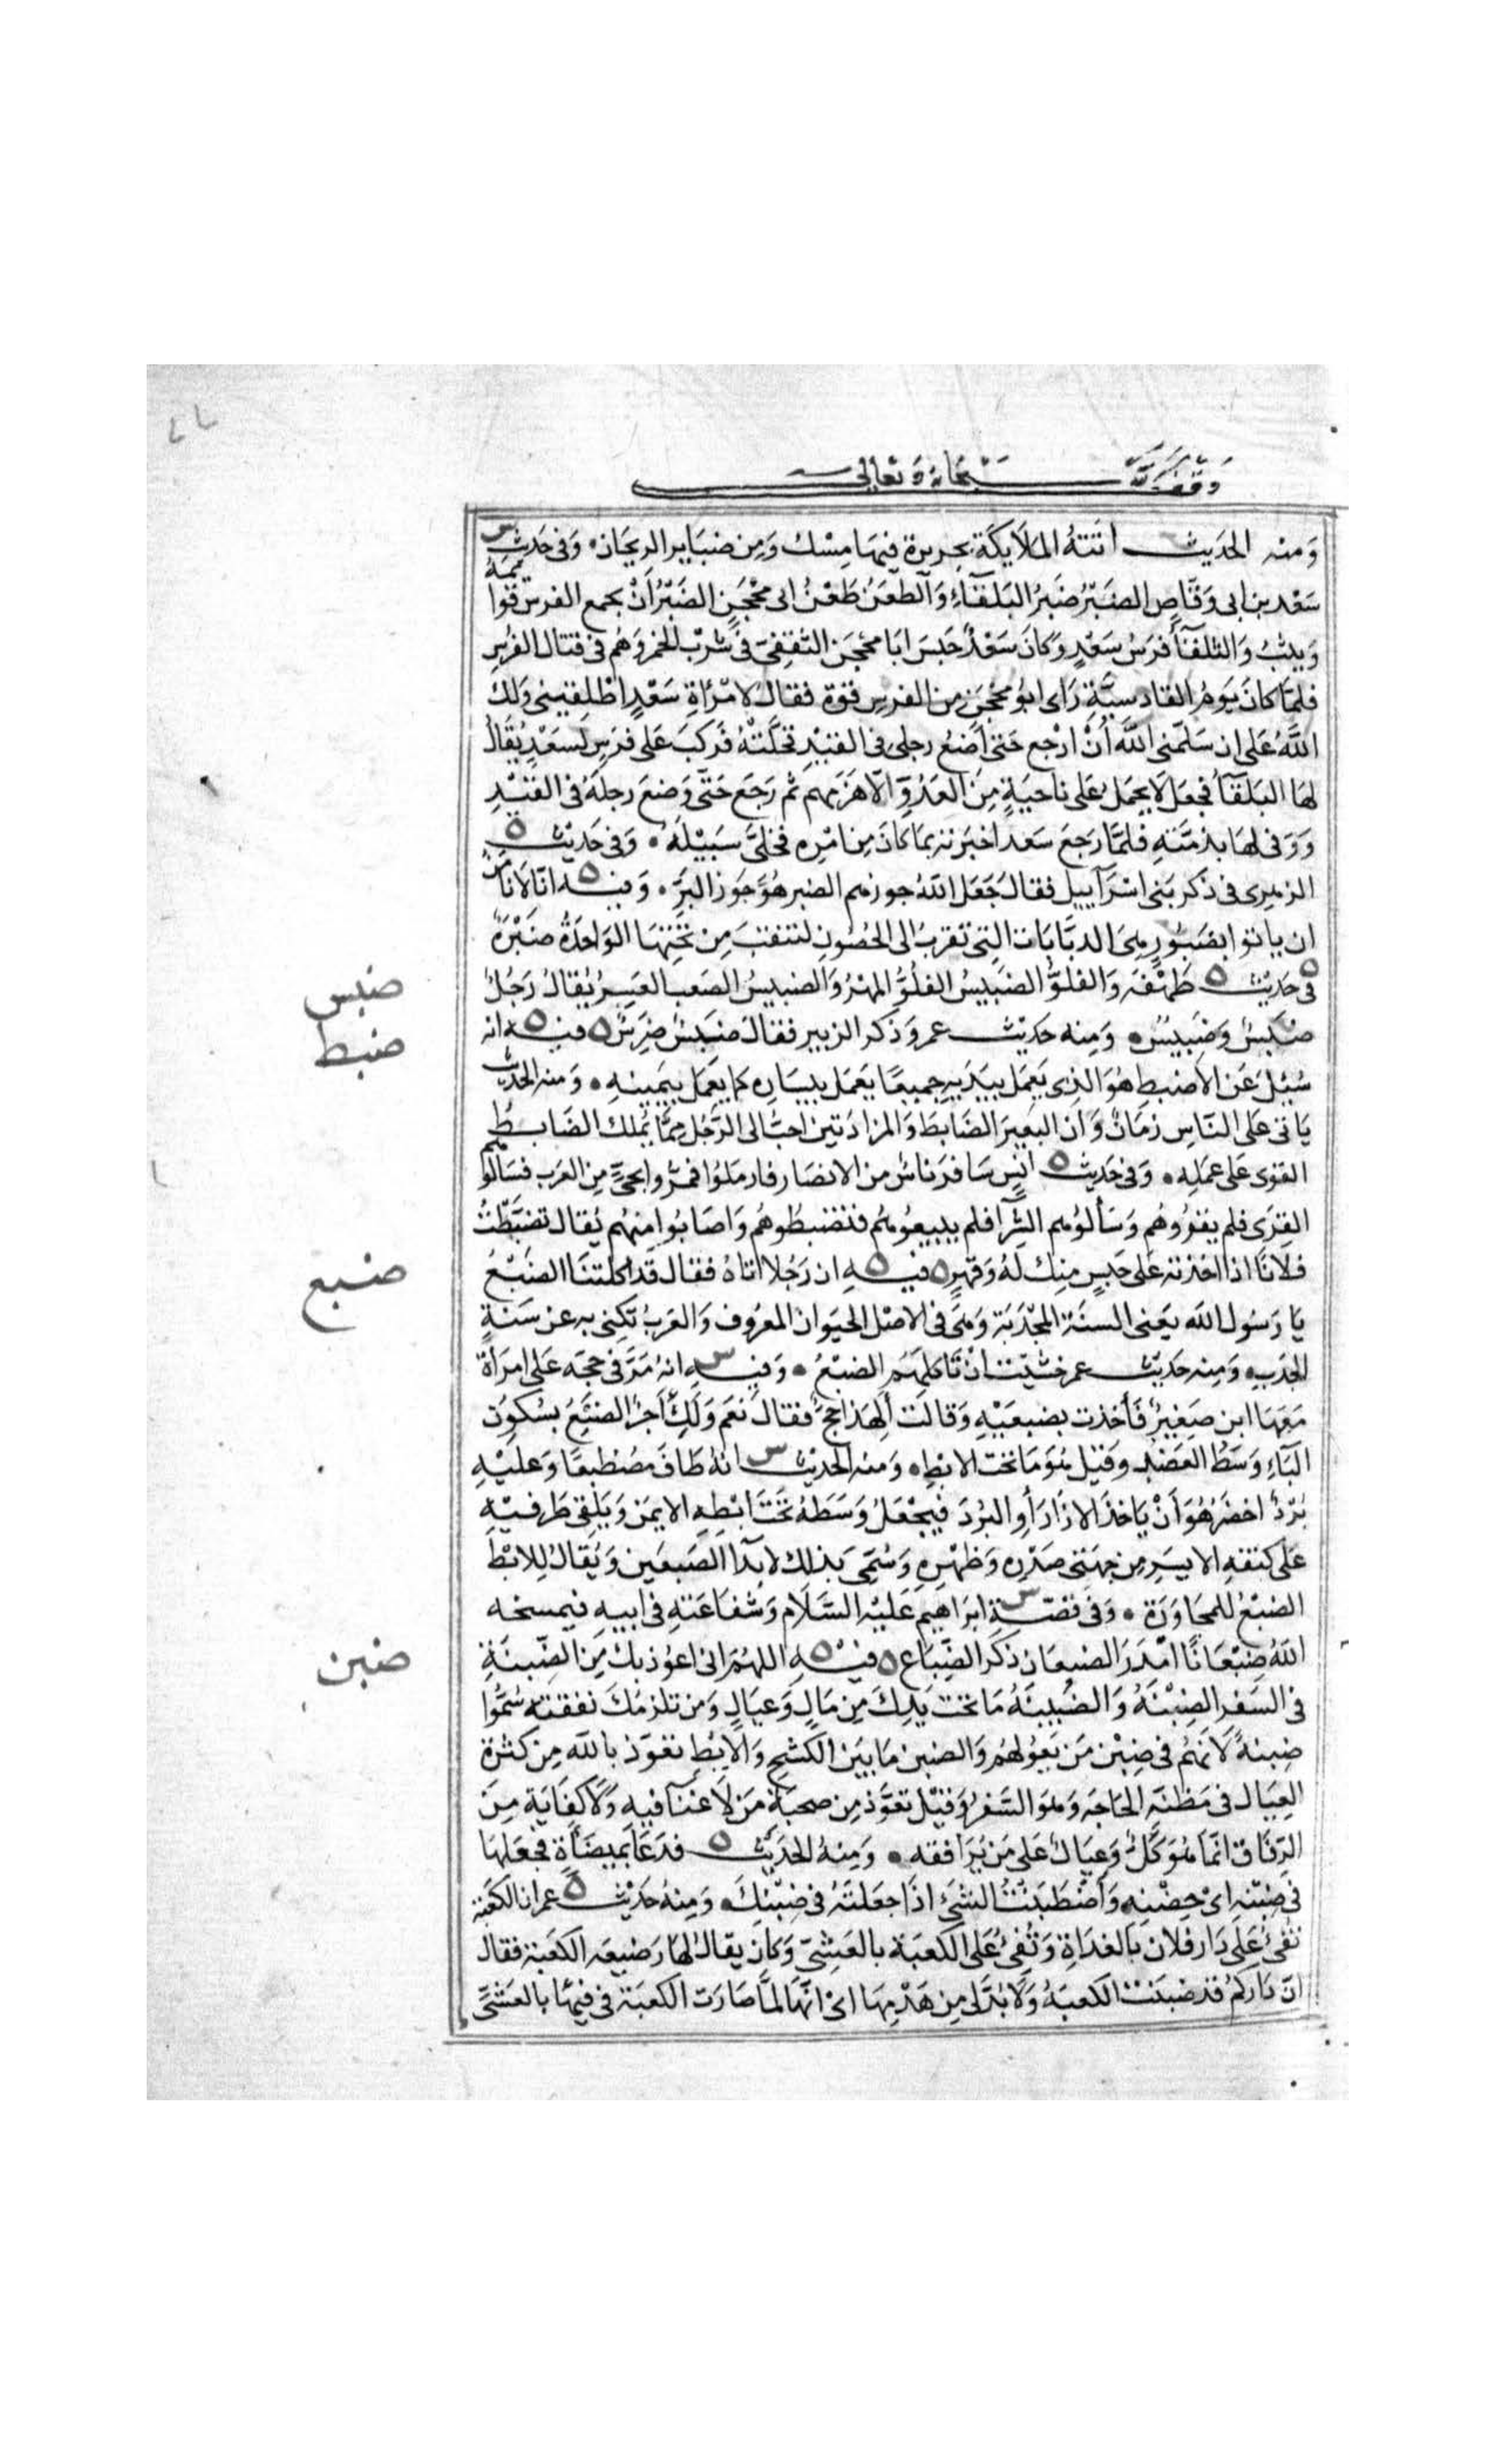 وقف لله سبحانه وتعالى
ومنه الحديث اتته الملايكة بحريرة فيها مسك ومن ضباير الريحان . وفى حديث س
سعد بن ابى وقاص الضبر ضبر البلقاء والطعن طعن ابى محجن الضبر ان يجمع الفرس قوائمه
ويثب والبلقا فرس سعد وكان سعد حبس ابا محجن الثقفى فى شرب الخمر وهم فى قتال الفرس
فلما كان يوم القادسية راى ابو محجن من الفرس قوة فقال لامرأة سعد اطلقينى ولك
الله على ان سلمنى الله أن ارجع حتى أضع رجلى فى القيد فخلته فركب على فرس لسعد يقال
لها البلقا فجعل لا يحمل على ناحية من العدو الا هزمهم ثم رجع حتى وضع رجله فى القيد
ووفى لها بذمته فلما رجع سعد اخبرته بما كان من امره فخلى سبيله . وفى حديث ه
الزهرى فى ذكر بنى اسرآييل فقال جعل الله جوزهم الضبر هو جوز البر . وفيه ه انا لا نامن
ان ياتوا بضبور هى الدبابات التى تقرب الى الحصون لتنقب من تحتها الواحدة ضبرة
ه فى حديث ه طهفة والفلو الضبيس الفلو المهر والضبيس الصعب العسر يقال رجل
ضبس وضبيس . ومنه حديث عمر وذكر الزبير فقال ضبس ضرس ه فيه ه انه
سئل عن الاضبط هو الذى يعمل بيديه جميعا يعمل بيساره كما يعمل بيمينه . ومنه الحديث
ياتى على الناس زمان وان البعير الضابط والمزادتين احب الى الرجل مما يملك الضابط
القوى على عمله . وفى حديث ه انس سافر ناس من الانصار فارملوا فمروا بحى من العرب فسالوهم
القرى فلم يقروهم وسألوهم الشرا فلم يبيعوهم فتضبطوهم واصابوا منهم يقال تضبطت
فلانا اذا اخذته على حبس منك له وقهر ه فيه ه ان رجلا اتاه فقال قد اكلتنا الضبع
يا رسول الله يعنى السنة المجدبة وهى فى الاصل الحيوان المعروف والعرب تكنى به عن سنة
الجدب . ومنه حديث عمر خشيت ان تاكلهم الضبع . وفيه س انه مر فى حجه على امرأة
معها ابن صغير فأخذت بضبعيه وقالت ألهذا حج فقال نعم ولك أجر الضبع بسكون
البآء وسط العضد وقيل هو ما تحت الابط . ومنه الحديث س انه طاف مضطبعا وعليه
برد اخضر هو أن ياخذ الازار أو البرد فيجعل وسطه تحت ابطه الايمن ويلقى طرفيه
على كتفه الايسر من جهتى صدره وظهره وسمى بذلك لابدا الضبعين ويقال للابط
الضبع للمجاورة . وفى قصة س ابراهيم عليه السلام وشفاعته فى ابيه فيمسخه
الله ضبعانا امدر الضبعان ذكر الضباع ه فيه ه اللهم انى اعوذ بك من الضبنة
فى السفر الضبنة والضبنة ما تحت يدك من مال وعيال ومن تلزمك نفقته سموا
ضبنة لانهم فى ضبن من يعولهم والضبن ما بين الكشح والابط تعوذ بالله من كثرة
العيال فى مظنة الحاجة وهو السفر وقيل تعوذ من صحبة من لا غنا فيه ولا كفاية من
الرفاق انما هو كل وعيال على من يرافقه . ومنه الحديث ه فدعا بميضأة فجعلها
فى ضبنه اى حضنه واضطبنت الشئ اذا جعلته فى ضبنك . ومنه حديث ه عمر ان الكعبة
تفئ على دار فلان بالغداة وتفئ على الكعبة بالعشى وكان يقال لها رضيعة الكعبة فقال
ان داركم قد ضبنت الكعبة ولا بد لى من هدمها اى انها لما صارت الكعبة فى فيئها بالعشى
ضبس
ضبط
ضبع
ضبن